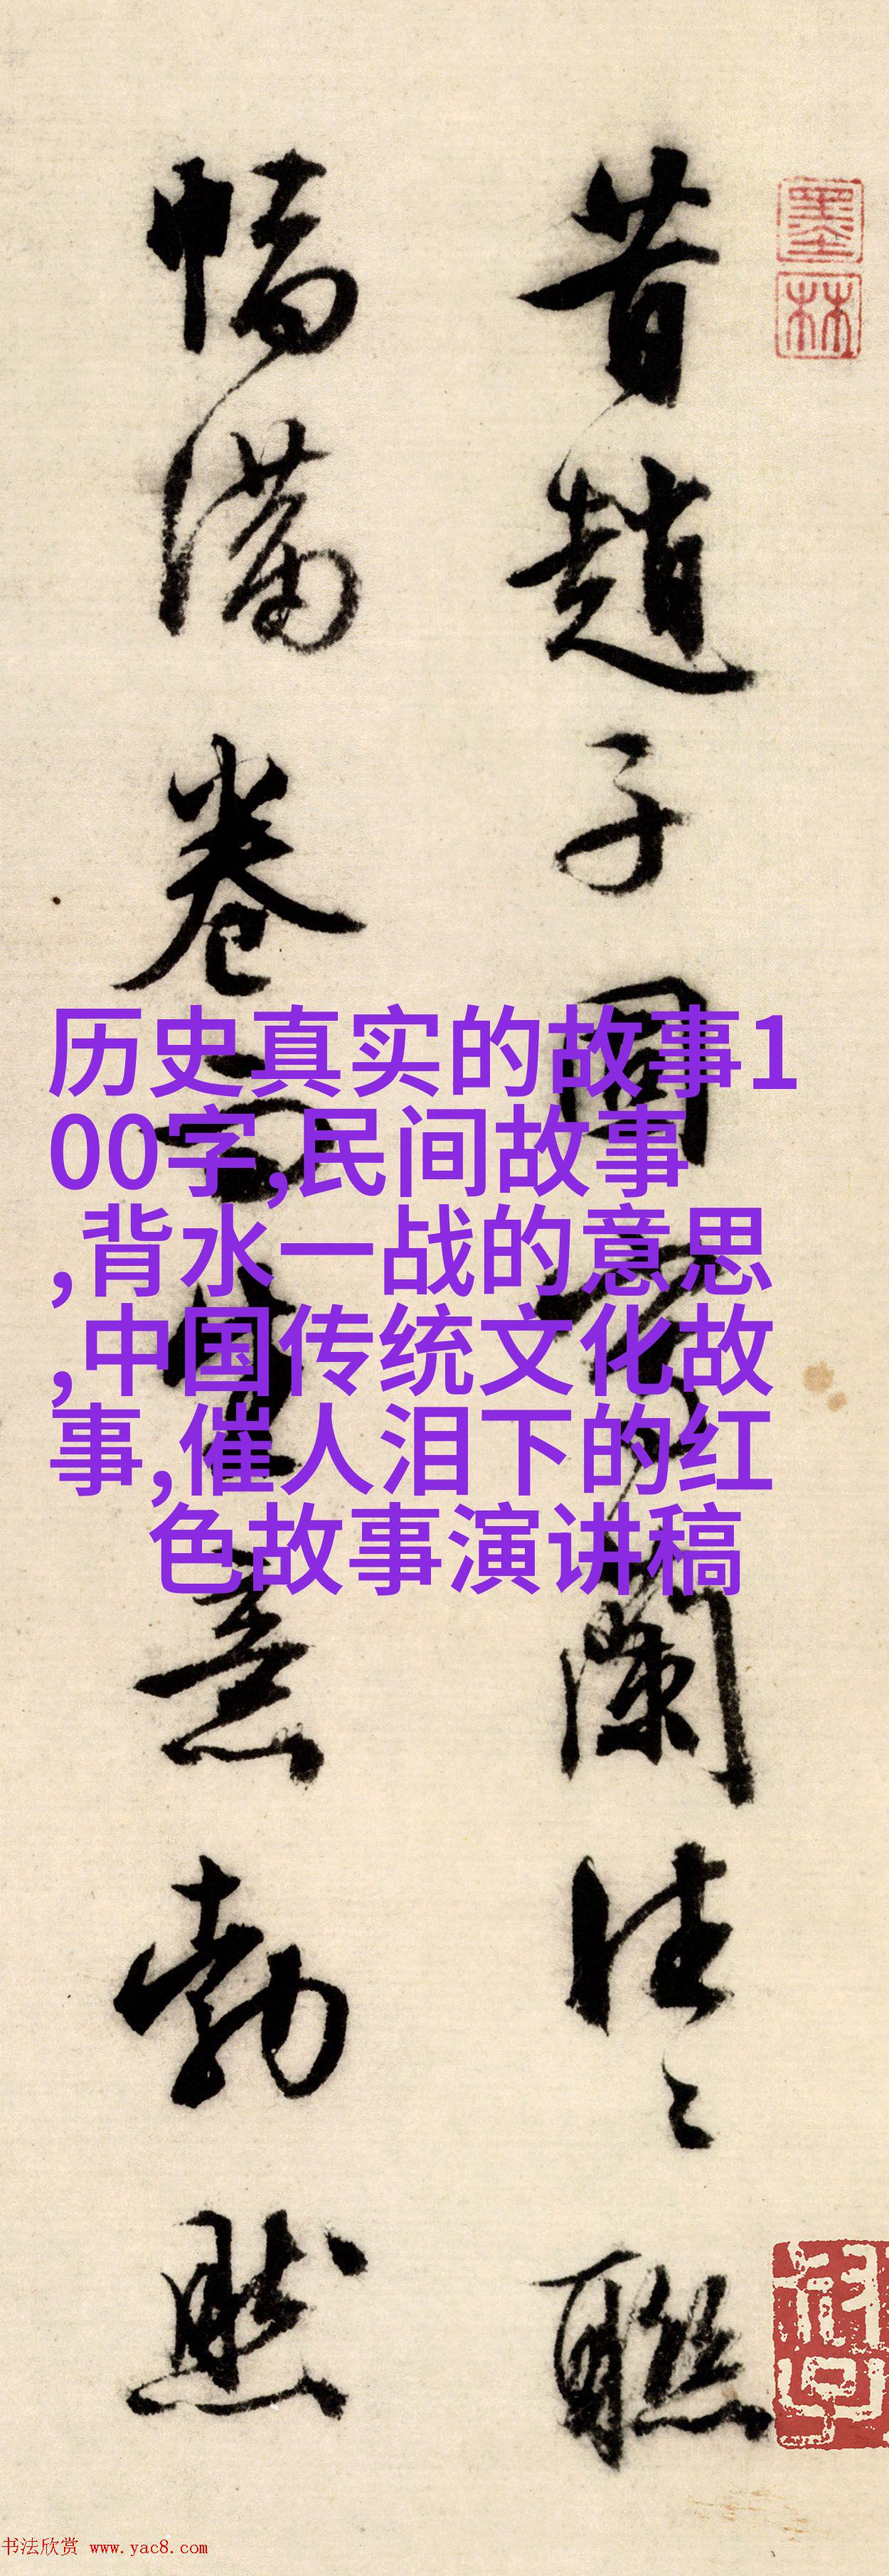 墨林
昔趙子固寫蘭往々聯
幅滿卷而生意勃然
历史真实的故事1
00字,民间故事
,背水一战的意思
,中国传统文化故
事,催人泪下的红
色故事演讲稿
书法欣赏 www.yac8.com